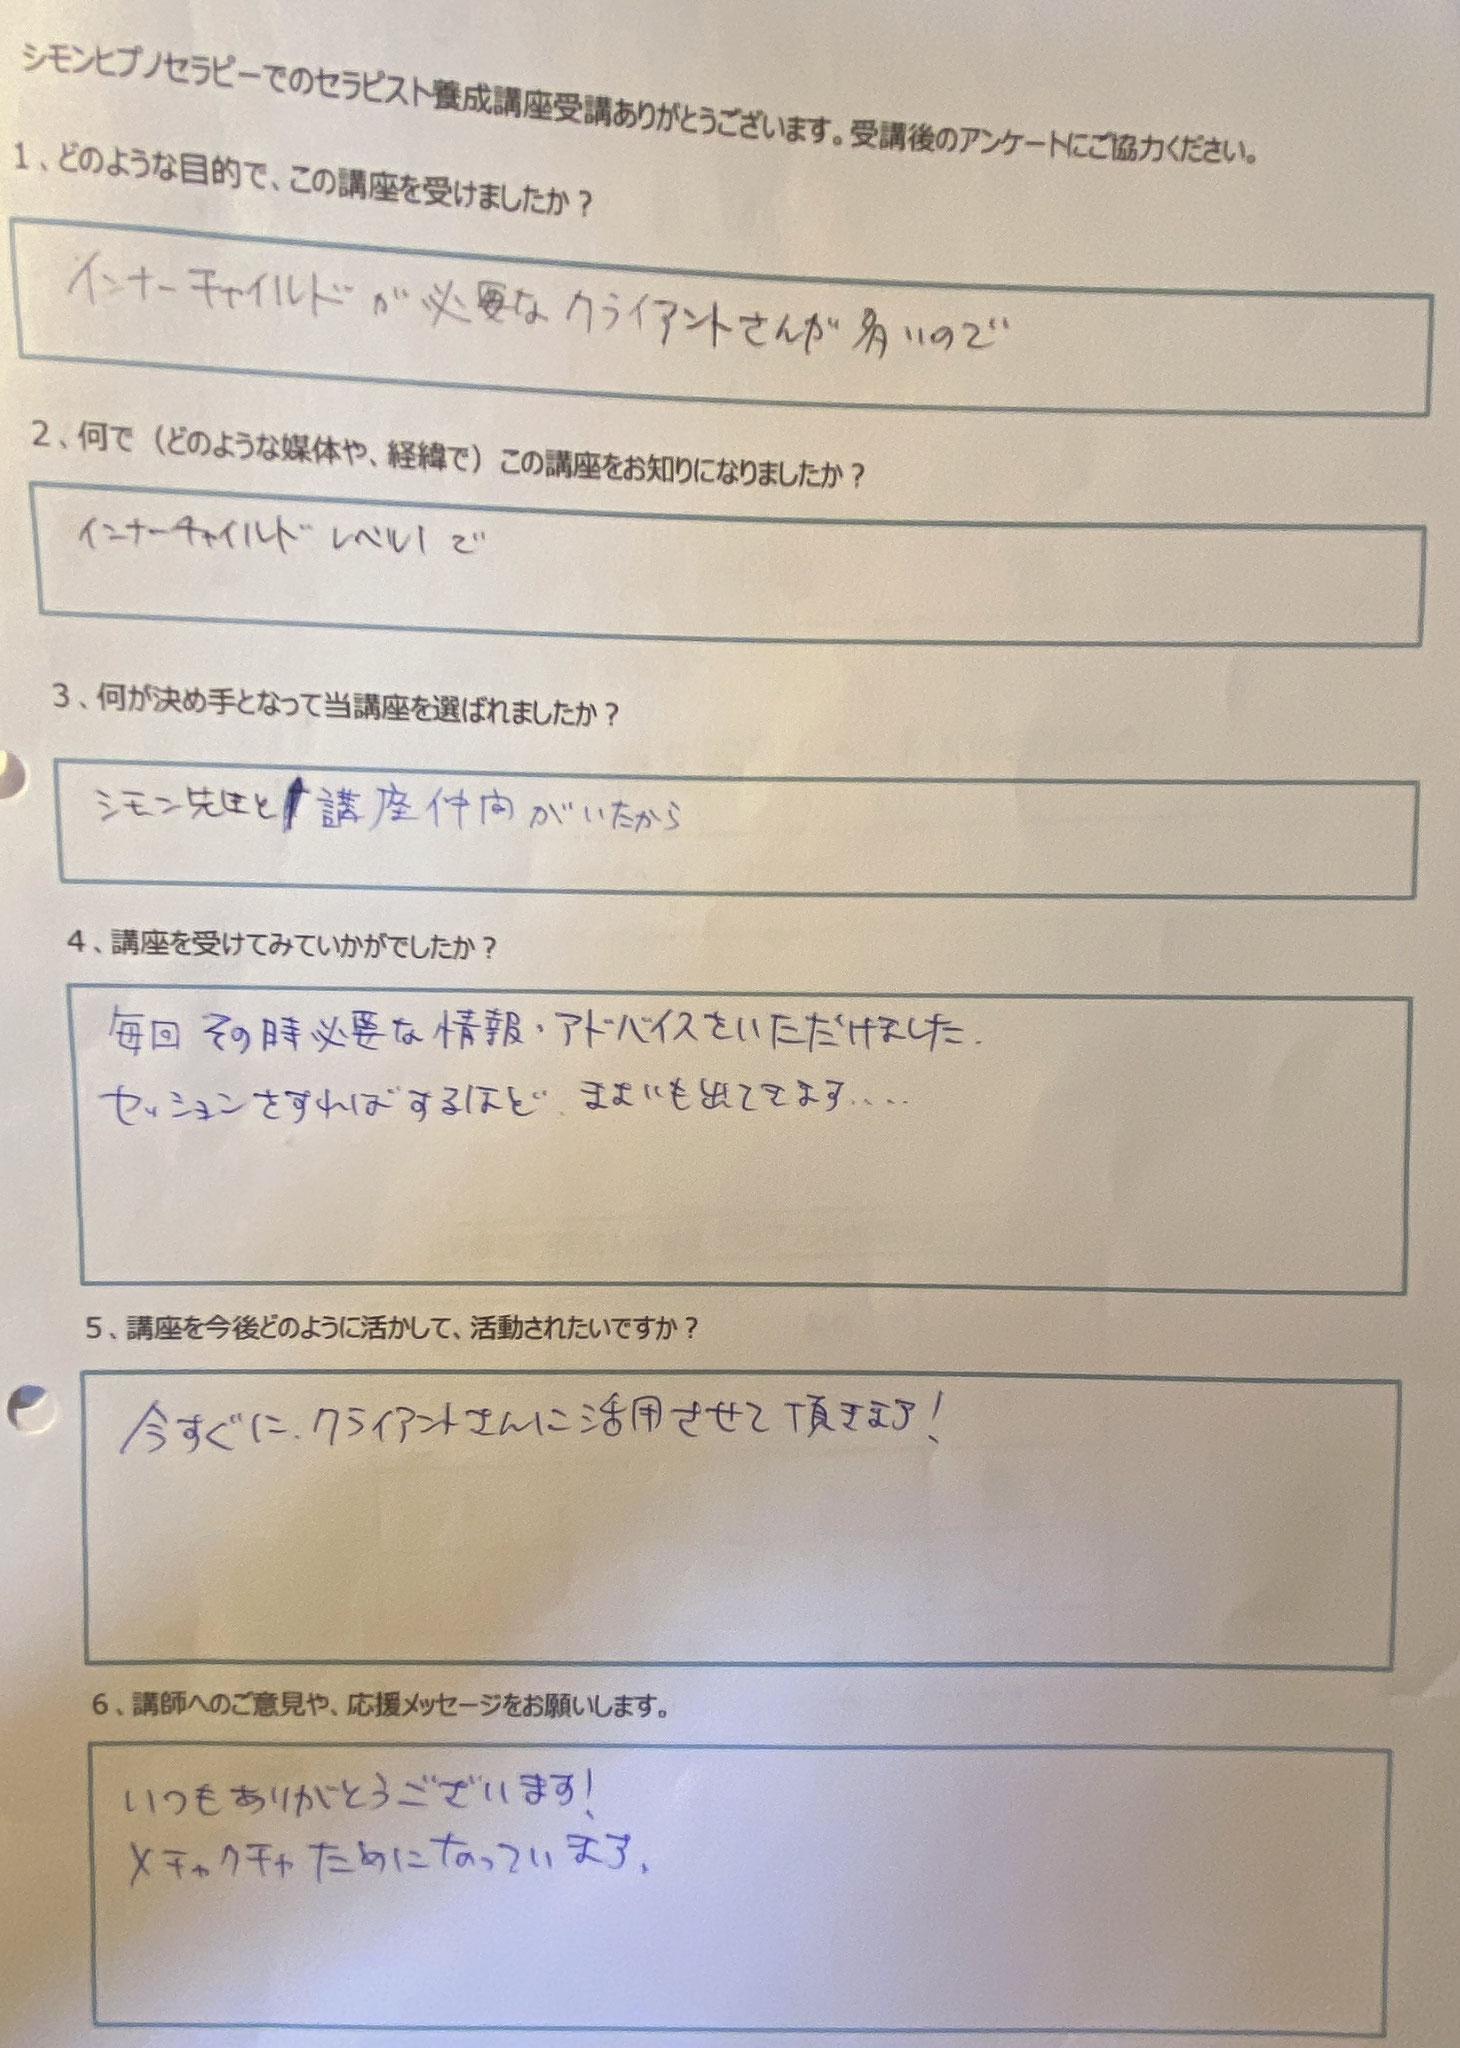 シモンヒプノセラピーでのセラピスト養成講座受講ありがとうございます。受講後のアンケートにご協力ください。
1、どのような目的で、この講座を受けましたか？
インナーチャイルドが必要なクライアントさんが多いので
2、何で（どのような媒体や、経緯で）この講座をお知りになりましたか？
インナーチャイルドレベル1で
3、何が決め手となって当講座を選ばれましたか？
シモン先生と講座仲間がいたから
4、講座を受けてみていかがでしたか？
毎回その時必要な情報・アドバイスをいただけました.
セッションをすればするほど、まよいも出てきます....
5、講座を今後どのように活かして、活動されたいですか？
今すぐに、クライアントさんに活用させて頂きます！
6、講師へのご意見や、応援メッセージをお願いします。
いつもありがとうございます！
メチャクチャためになっています、